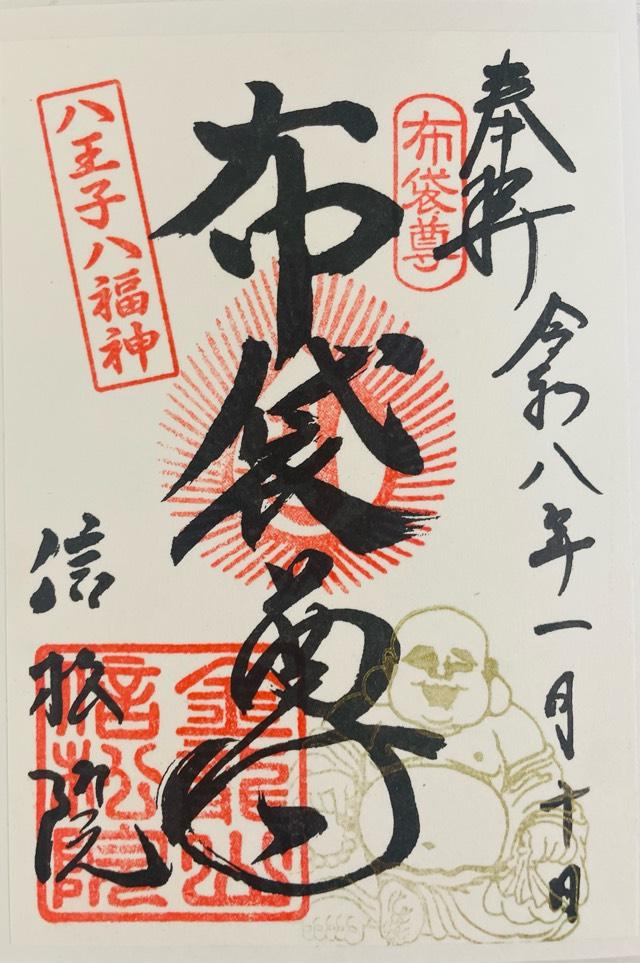 奉拝
令和八年一月十日
布袋尊
布袋尊
八王子八福神
信松院
金龍山
信松院